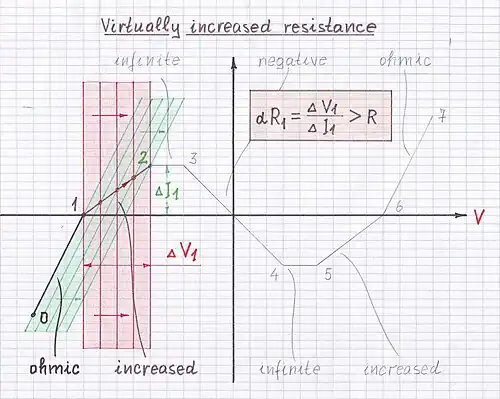 Virtually increased resistance
infinite
negative
ohmic
dR₁ = ΔV₁ / ΔI₁ > R
7
2
3
ΔI₁
1
6
V
ΔV₁
4
5
0
ohmic
increased
infinite
increased